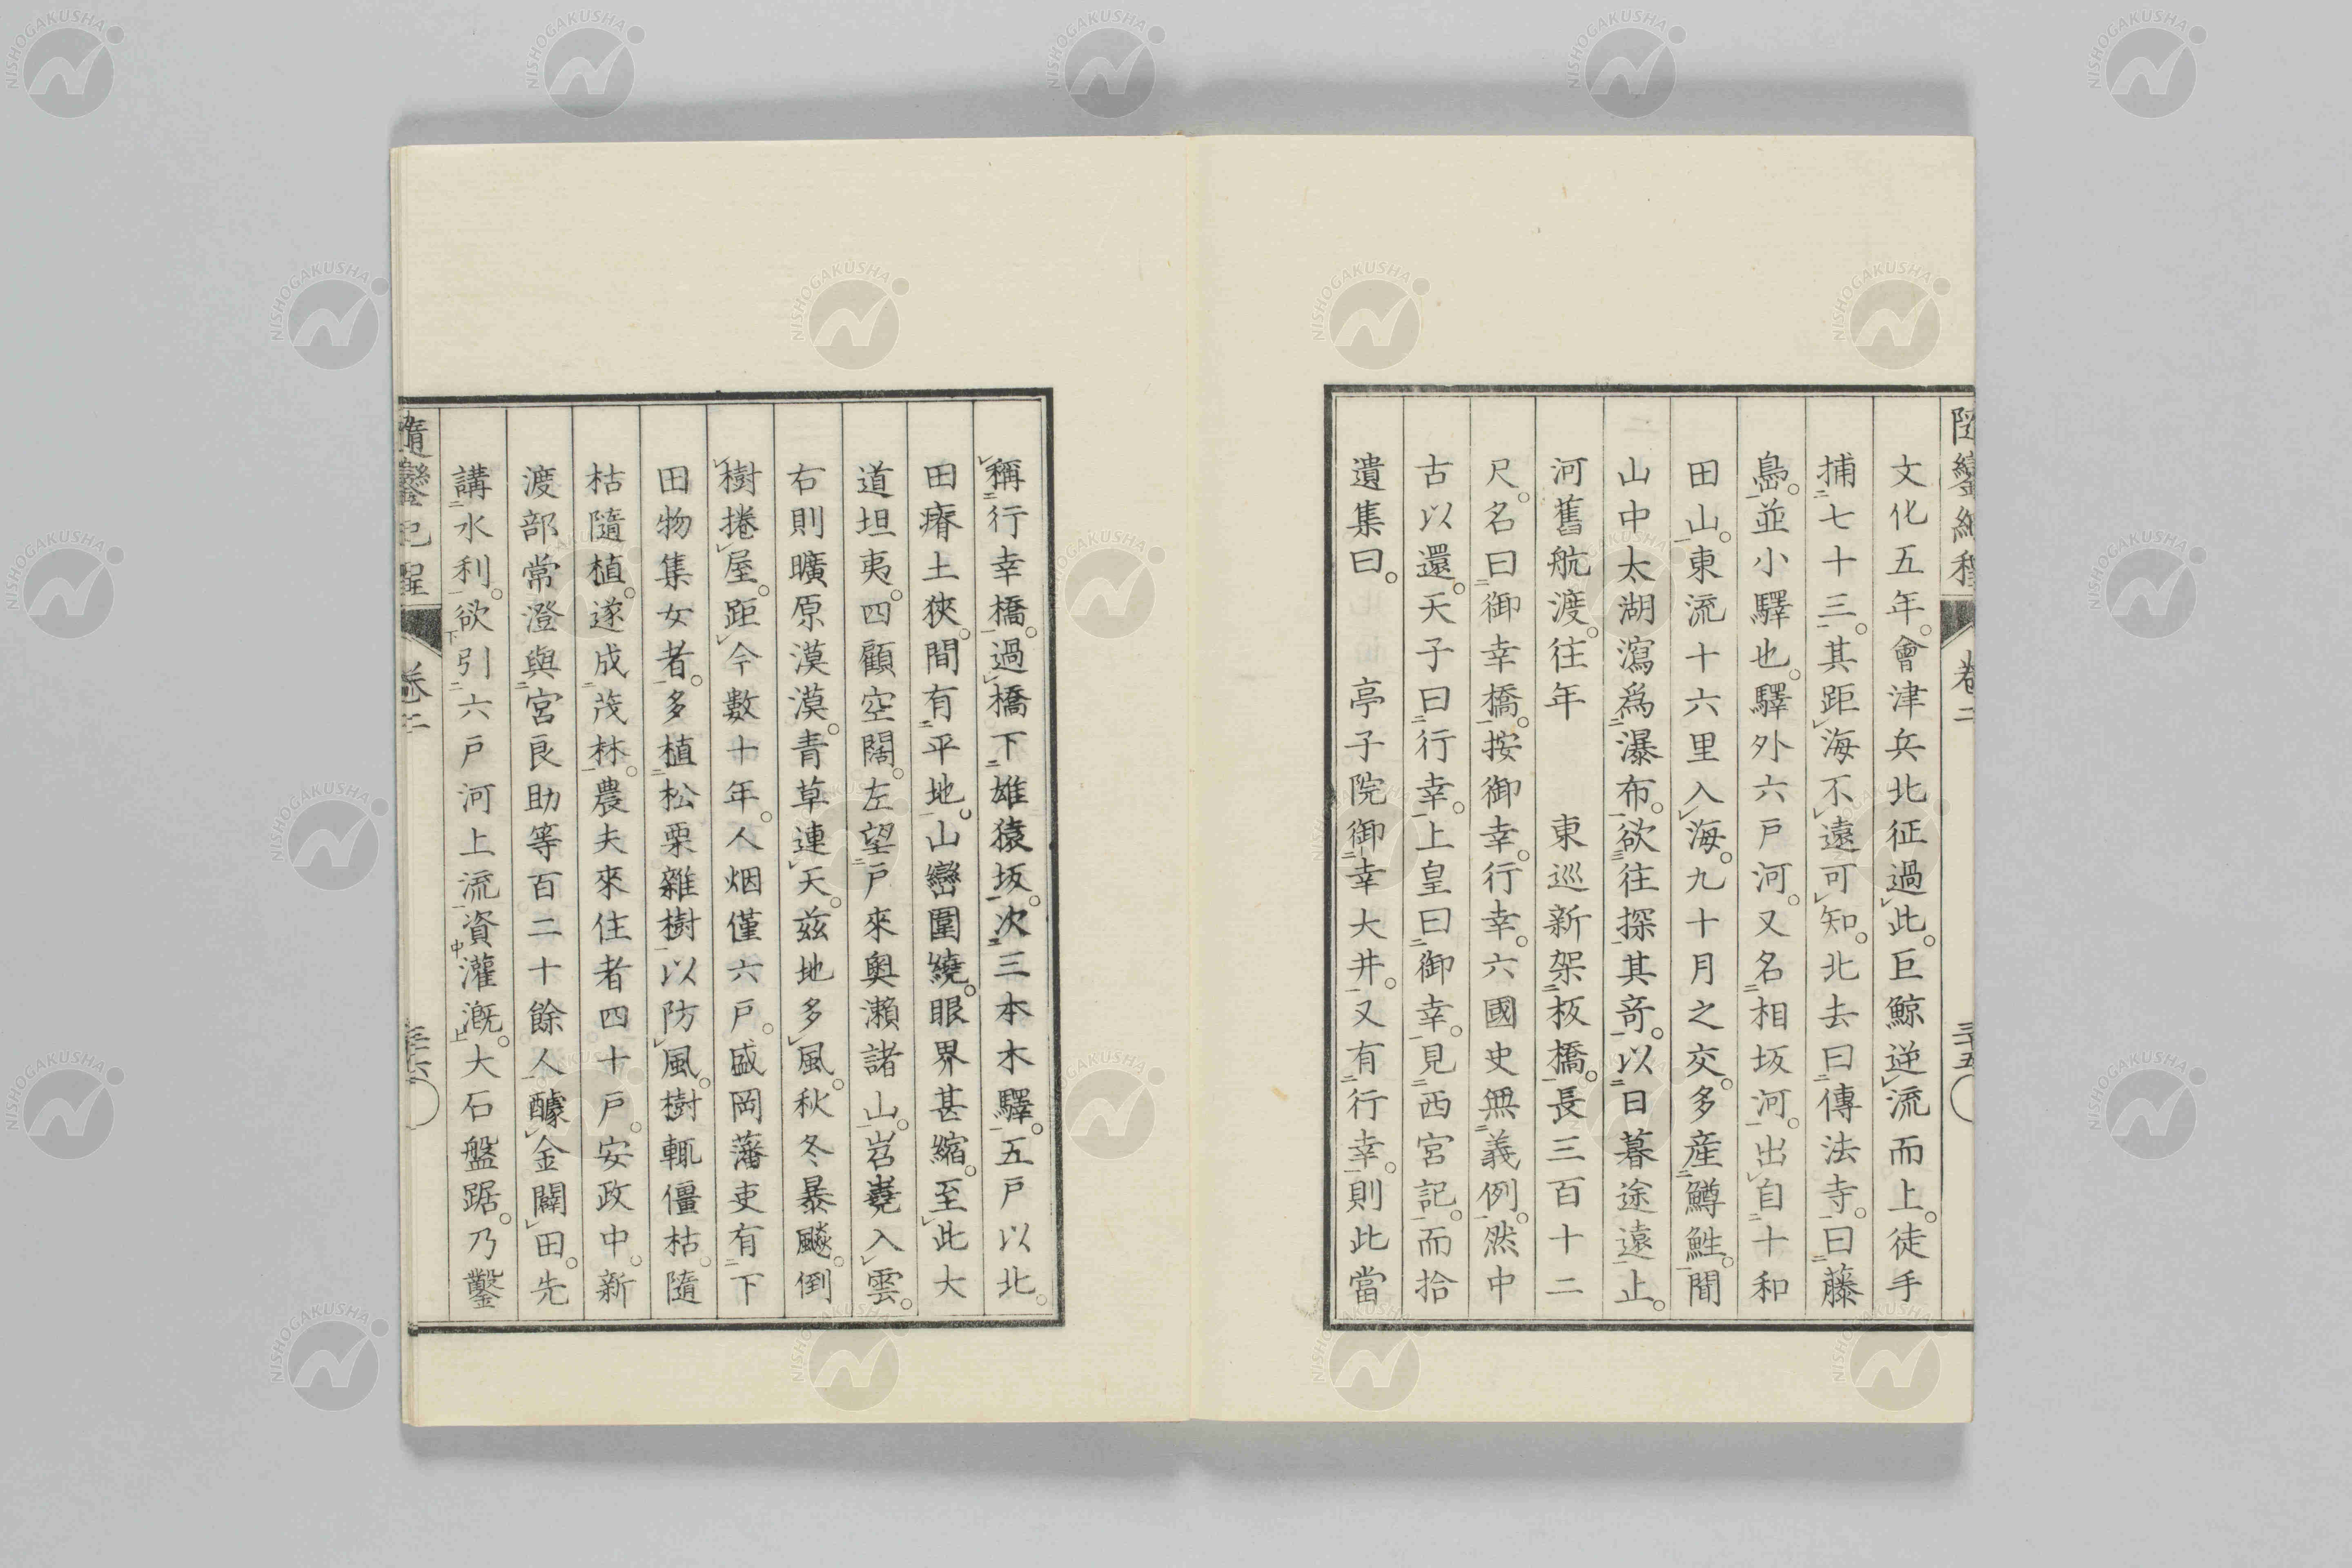 文化五年。會津兵北征過此。巨鯨逆流而上。徒手
捕七十三。其距海不遠可知。北去曰傳法寺。曰藤
島。並小驛也。驛外六戸河。又名相坂河。出自十和
田山。東流十六里入海。九十月之交。多産鱒鮏。聞
山中太湖瀉爲瀑布。欲往探其奇。以日暮途遠止。
河舊航渡。往年　東巡新架板橋。長三百十二
尺。名曰御幸橋。按御幸。行幸。六國史無義例。然中
古以還。天子曰行幸。上皇曰御幸。見西宮記。而拾
遺集曰。亭子院御幸大井。又有行幸。則此當
稱行幸橋。過橋下雄猿坂。次三本木驛。五戸以北。
田瘠土狹。間有平地。山巒圍繞。眼界甚縮。至此大
道坦夷。四顧空闊。左望戸來奧瀨諸山。岧嶤入雲。
右則曠原漠漠。青草連天。茲地多風。秋冬暴飈。倒
樹捲屋。距今數十年。人烟僅六戸。盛岡藩吏有下
田物集女者。多植松栗雜樹以防風。樹輒僵枯。隨
枯隨植。遂成茂林。農夫來住者四十戸。安政中。新
渡部常澄與宮良助等百二十餘人醵金闢田。先
講水利。欲引六戸河上流資灌漑。大石盤踞。乃鑿
卷二
三十五
NISHOGAKUSHA